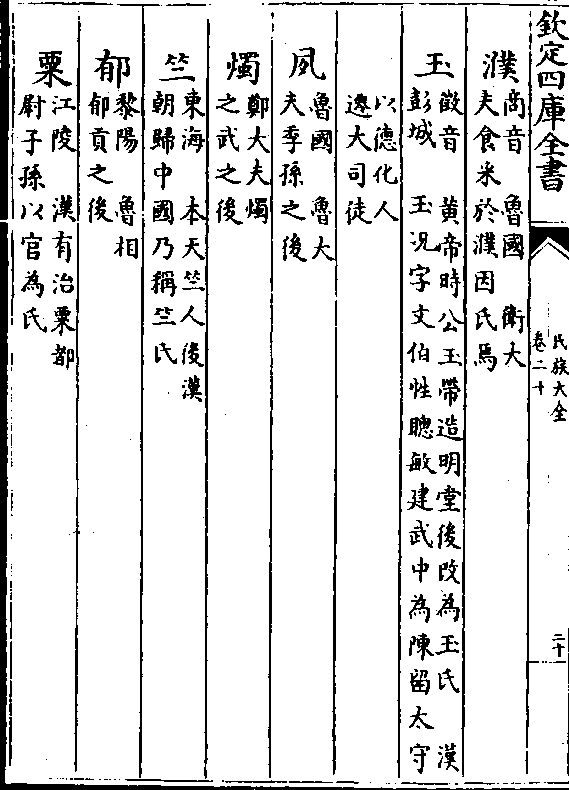 欽定四庫全書
氏族大全
卷二十
二十
濮
商音 魯國 衛大
夫食米於濮因氏焉
玉
徵音 黄帝時公玉帶造明堂後改為玉氏 漢
彭城 玉况字文伯性聰敏建武中為陳留太守
以德化人
遷大司徒
夙
魯國 魯大
夫季孫之後
燭
鄭大夫燭
之武之後
竺
東海 本天竺人後漢
朝歸中國乃稱竺氏
郁
黎陽 魯相
郁貢之後
粟
江陵 漢有治粟都
尉子孫以官為氏